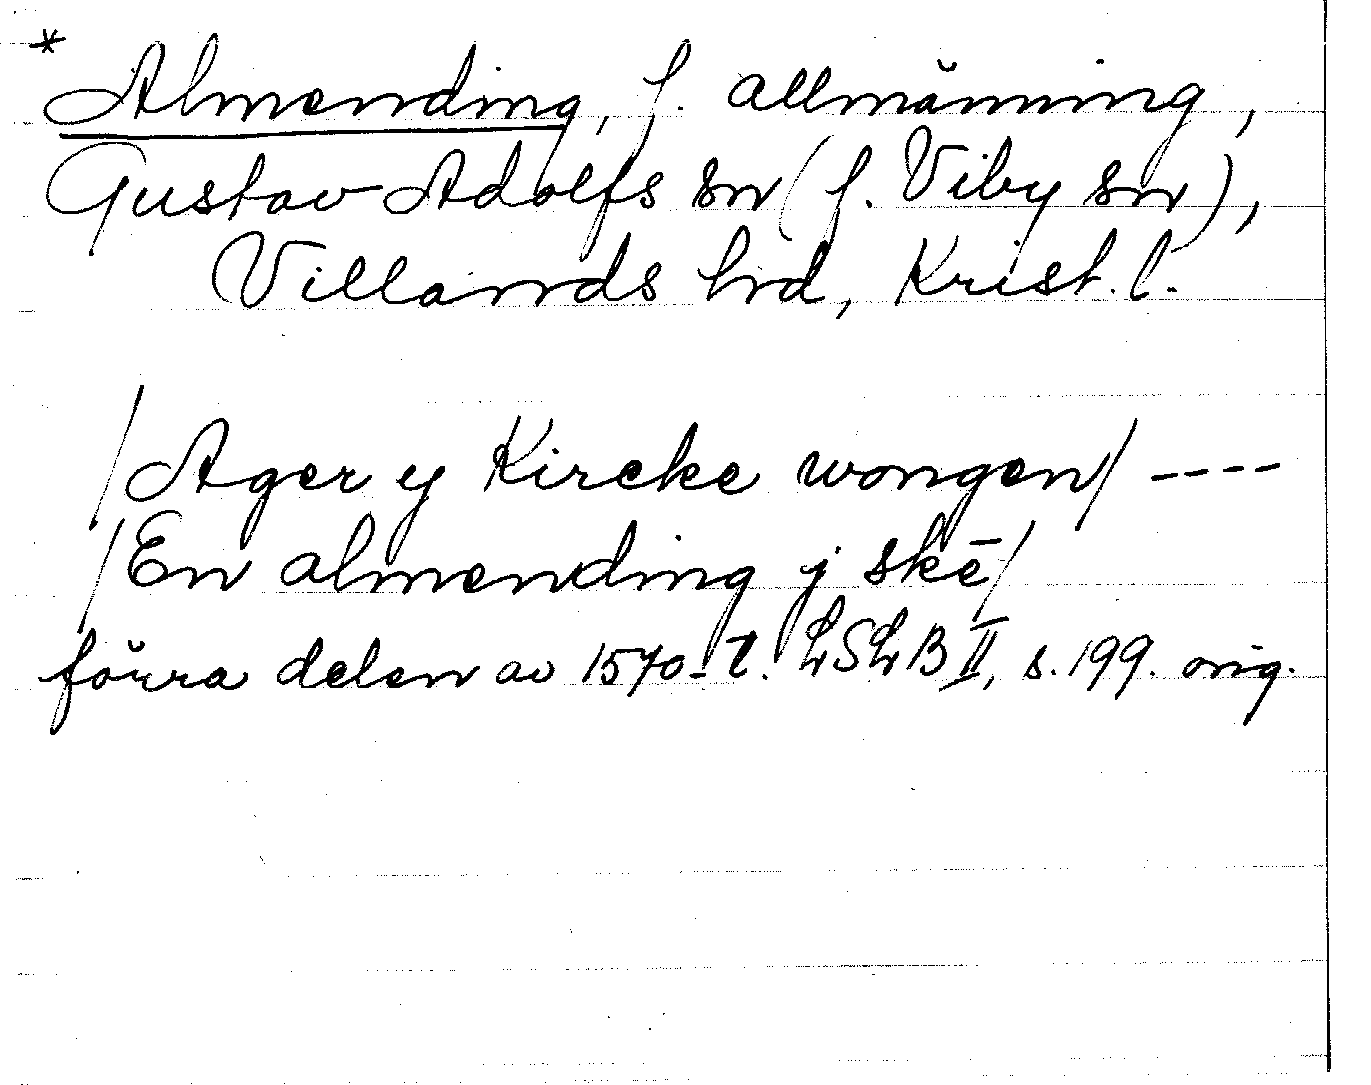 * Almending, f. allmänning,
Gustav Adolfs sn (f. Viby sn),
Villands hd, Krist. l.
/Ager y Kircke wongen/ ----
/En almending j skē/
förra delen av 1570-t. LSLB II, s. 199. orig.